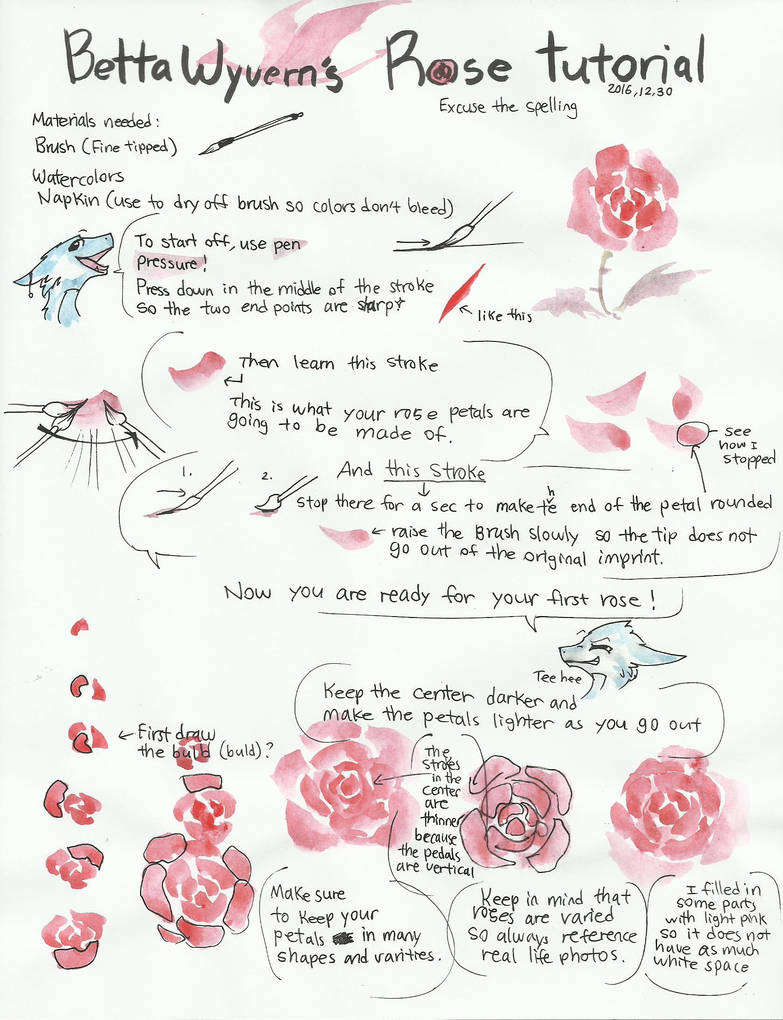 BettaWyvern's Rose tutorial
2016,12,30
Excuse the spelling
Materials needed:
Brush (Fine tipped)
Watercolors
Napkin (use to dry off brush so colors don't bleed)
To start off, use pen
pressure!
Press down in the middle of the stroke
so the two end points are sharp
like this
Then learn this stroke
This is what your rose petals are
going to be made of.
see
how I
stopped
And this stroke
1.
2.
Stop there for a sec to make the end of the petal rounded
raise the Brush slowly so the tip does not
go out of the original imprint.
Now you are ready for your first rose!
Tee hee
Keep the center darker and
make the petals lighter as you go out
First draw
the buld (buld)?
The
strokes
in the
center
are
thinner
because
the pedals
are vertical
Make sure
to keep your
petals in many
shapes and varities.
Keep in mind that
roses are varied
so always reference
real life photos.
I filled in
some parts
with light pink
so it does not
have as much
white space